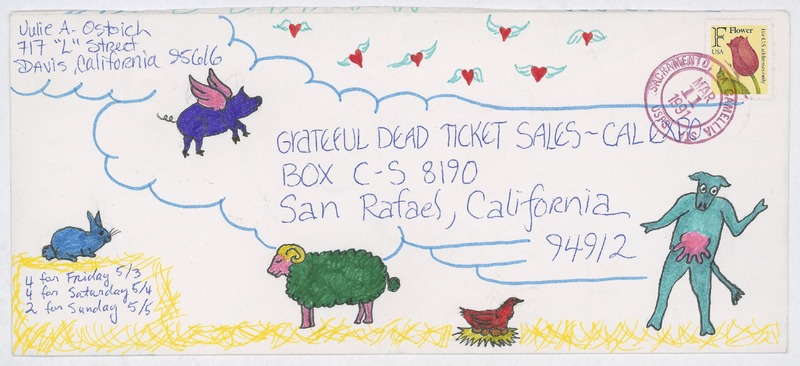 Julie A. Ostoich
717 "L" Street
Davis, California 95616
F Flower
USA
For U.S. addresses only
SACRAMENTO, CA
MAR
11
1991
USPS
CAMELLIA
GRATEFUL DEAD TICKET SALES~CAL EXPO
BOX C-S 8190
San Rafael, California
94912
4 for Friday 5/3
4 for Saturday 5/4
2 for Sunday 5/5